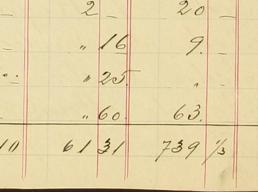 2 – 20 –
– „ 16 9. –
„ 25. „ –
„ 60. 63.
10 61 31 739 1/3